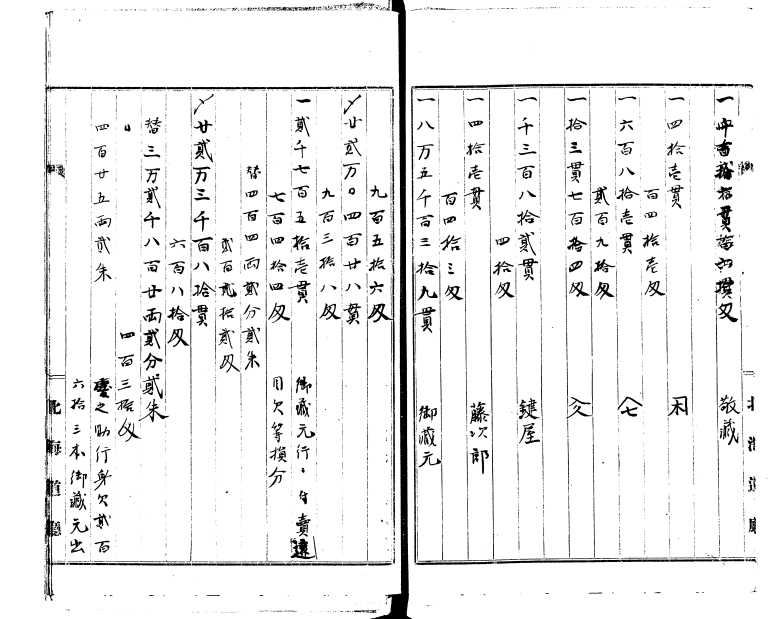 敬蔵
一四拾壱貫
百四拾壱匁
一六百八拾壱貫
弐百九拾匁
一拾三貫七百拾四匁
一千三百八拾弐貫 鍵屋
四拾匁
一四拾壱貫 藤次郎
百四拾三匁
一八万五千百三拾九貫 御蔵元
九百五拾六匁
〆廿弐万〇四百廿八貫
九百三拾八匁
一弐千七百五拾壱貫 御蔵元行
七百四拾四匁 目欠等損分
替四百四両弐分弐朱
弐百弐拾弐匁
〆廿弐万三千百八拾貫
六百八拾匁
替三万弐千八百廿両弐分弐朱
四百三拾匁
四百廿五両弐朱 之助行身欠弐百
六拾三本御蔵元出
北海道廳